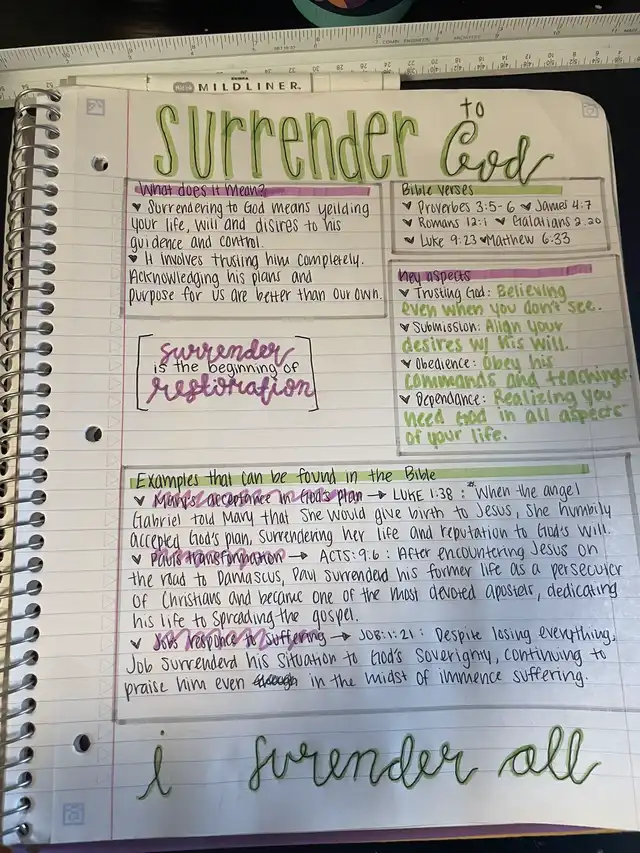 MILDLINER
surrender to God
What does it mean?
♥ Surrendering to God means yeilding
your life, will and disires to his
guidence and control.
♥ It involves trusting him completely.
Acknowledging his plans and
purpose for us are better than our own.
Bible verses
♥ Proverbes 3:5-6 ♥ James 4:7
♥ Romans 12:1 ♥ Galatians 2.20
♥ Luke 9:23 ♥ Matthew 6:33
Key aspects
♥ Trusting God: Believing
even when you don't see.
♥ Submission: Align your
desires w/ his will.
♥ Obedience: Obey his
commands and teachings.
♥ Dependance: Realizing you
need God in all aspects
of your life.
surrender
is the beginning of
restoration
Examples that can be found in the Bible
♥ Mary's acceptance in God's plan → LUKE 1:38 : When the angel
Gabriel told Mary that she would give birth to Jesus, she humbily
accepted God's plan, surrendering her life and reputation to God's will.
♥ Paul's transformation → ACTS:9:6 : After encountering Jesus on
the road to Damascus, Paul surrended his former life as a persecutor
of Christians and became one of the most devoted apostels, dedicating
his life to spreading the gospel.
♥ Jobs responce to suffering → JOB:1:21 : Despite losing everything,
Job surrenderd his situation to God's soverighty, continuing to
praise him even in the midst of immence suffering.
i surender all